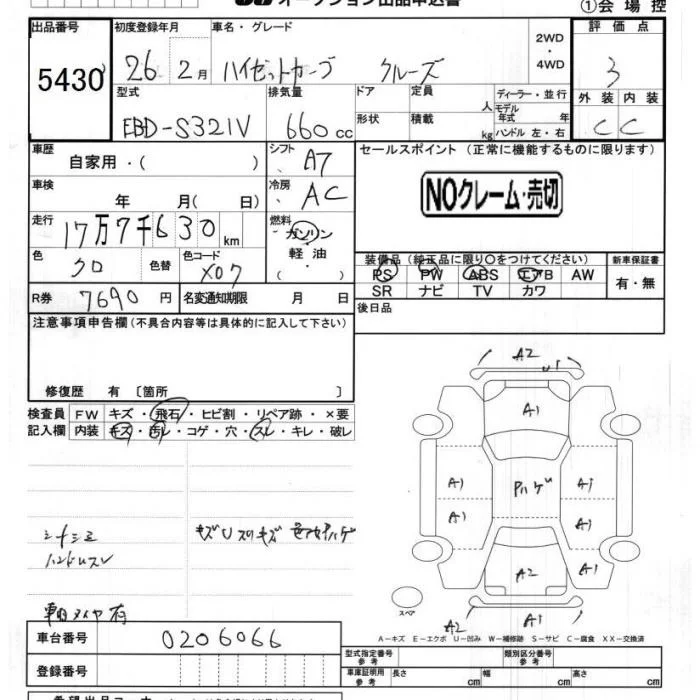 オークション出品申込書
①会場控
出品番号 初度登録年月 車名・グレード 評価点
5430 26年 2月 ハイゼットカーゴ クルーズ 2WD・4WD 3
型式 排気量 ドア 定員 ディーラー・並行 外装 内装
EBD-S321V 660cc 形状 積載 人 kg モデル年式 年 ハンドル 左・右 C C
車歴 自家用・( ) シフト A7 セールスポイント (正常に機能するものに限ります)
車検 年 月( 日) 冷房 AC NOクレーム・売切
走行 17万7千630km 燃料 ガソリン・軽油・( )
色 クロ 色替 色コード X07 装備品 (純正品に限り○をつけてください) 新車保証書
PS PW ABS エアB AW 有・無
SR ナビ TV カワ
R券 7690円 名変通知期限 月 日 後日品
注意事項申告欄(不具合内容等は具体的に記入して下さい)
修復歴 有 〔箇所 〕
検査員 FW キズ・飛石・ヒビ割・リペア跡・×要
記入欄 内装 キズ・汚レ・コゲ・穴・スレ・キレ・破レ
A2
U1
A1
A1 ハゲ A1
A1 A1
A2 A1
スペア
A2 A1
A-キズ E-エクボ U-凹み W-補修跡 S-サビ C-腐食 XX-交換済
車台番号 0206066
型式指定番号 参考 類別区分番号 参考
登録番号 車庫証明用 参考 長さ cm 幅 cm 高さ cm